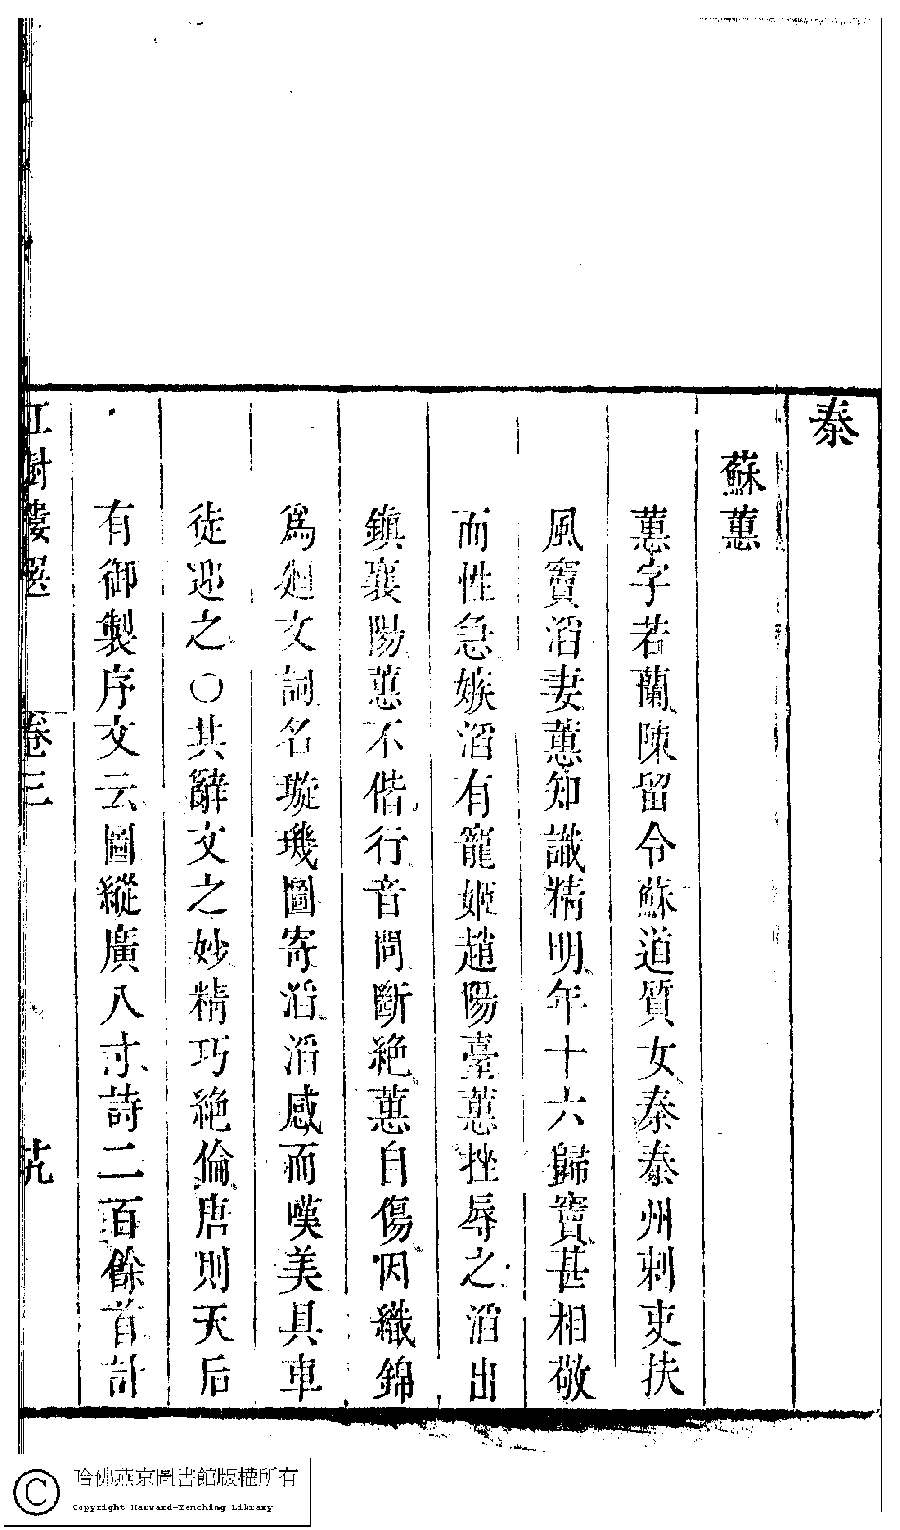 秦
蘇蕙
蕙字若蘭陳留令蘇道質女秦秦州刺吏扶
風竇滔妻蕙知識精明年十六歸竇甚相敬
而性急嫉滔有寵姬趙陽臺蕙挫辱之滔出
鎮襄陽蕙不偕行音問斷絶蕙自傷因織錦
爲廻文詞名璇璣圖寄滔滔感而嘆美具車
徒迎之○其辭文之妙精巧絶倫唐則天后
有御製序文云圖縱廣八寸詩二百餘首計
紅樹樓選 卷三
哈佛燕京圖書館版權所有
Copyright Harvard-Yenching Library